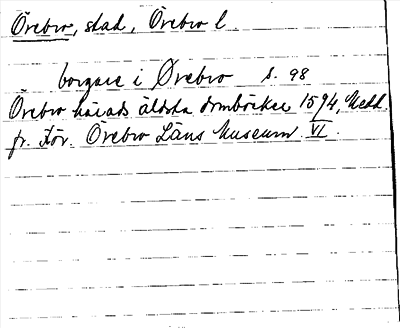 Örebro, stad, Örebro l.
borgare i Ørebro s. 98
Örebro härads äldsta dombücker 1594, Medd.
fr. För. Örebro Läns Museum VI.